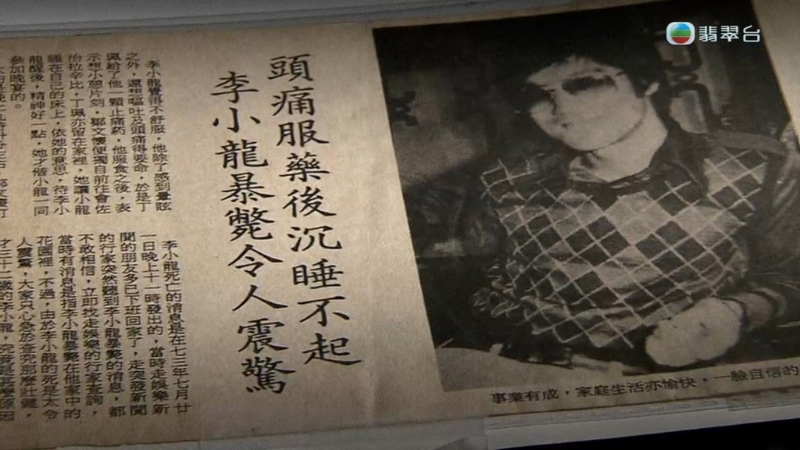 翡翠台
頭痛服藥後沉睡不起
李小龍暴斃令人震驚
李小龍覺得不舒服，他除了感到暈眩
之外，還想嘔吐及頭痛得要命，於是丁
珮給了他一顆止痛药，他服食之後，表
示想小息片刻，鄒文懷便獨自前往會佐
治拉辛比，丁珮亦留在家裡，她讓小龍
睡在自己的床上，依她的意思，待李小
龍醒後，精神好一點，她才偕小龍一同
參加晚宴的。
李小龍死亡的消息是在七三年七月廿
一日晚上十一時發出的，當時走娛樂新
聞的朋友多已下班回家了，走突發新聞
的行家突然聽到李小龍暴斃的消息，都
不敢相信，立即找走娛樂的行家查詢，
當時有消息是指李小龍暴斃在他家中的
花園裡，不過，由於李小龍的死是太令
人震驚，大家只心急於李究那麼壯健，
才三十一歲的李小龍，究竟是甚麼原因
事業有成，家庭生活亦愉快，一臉自信的